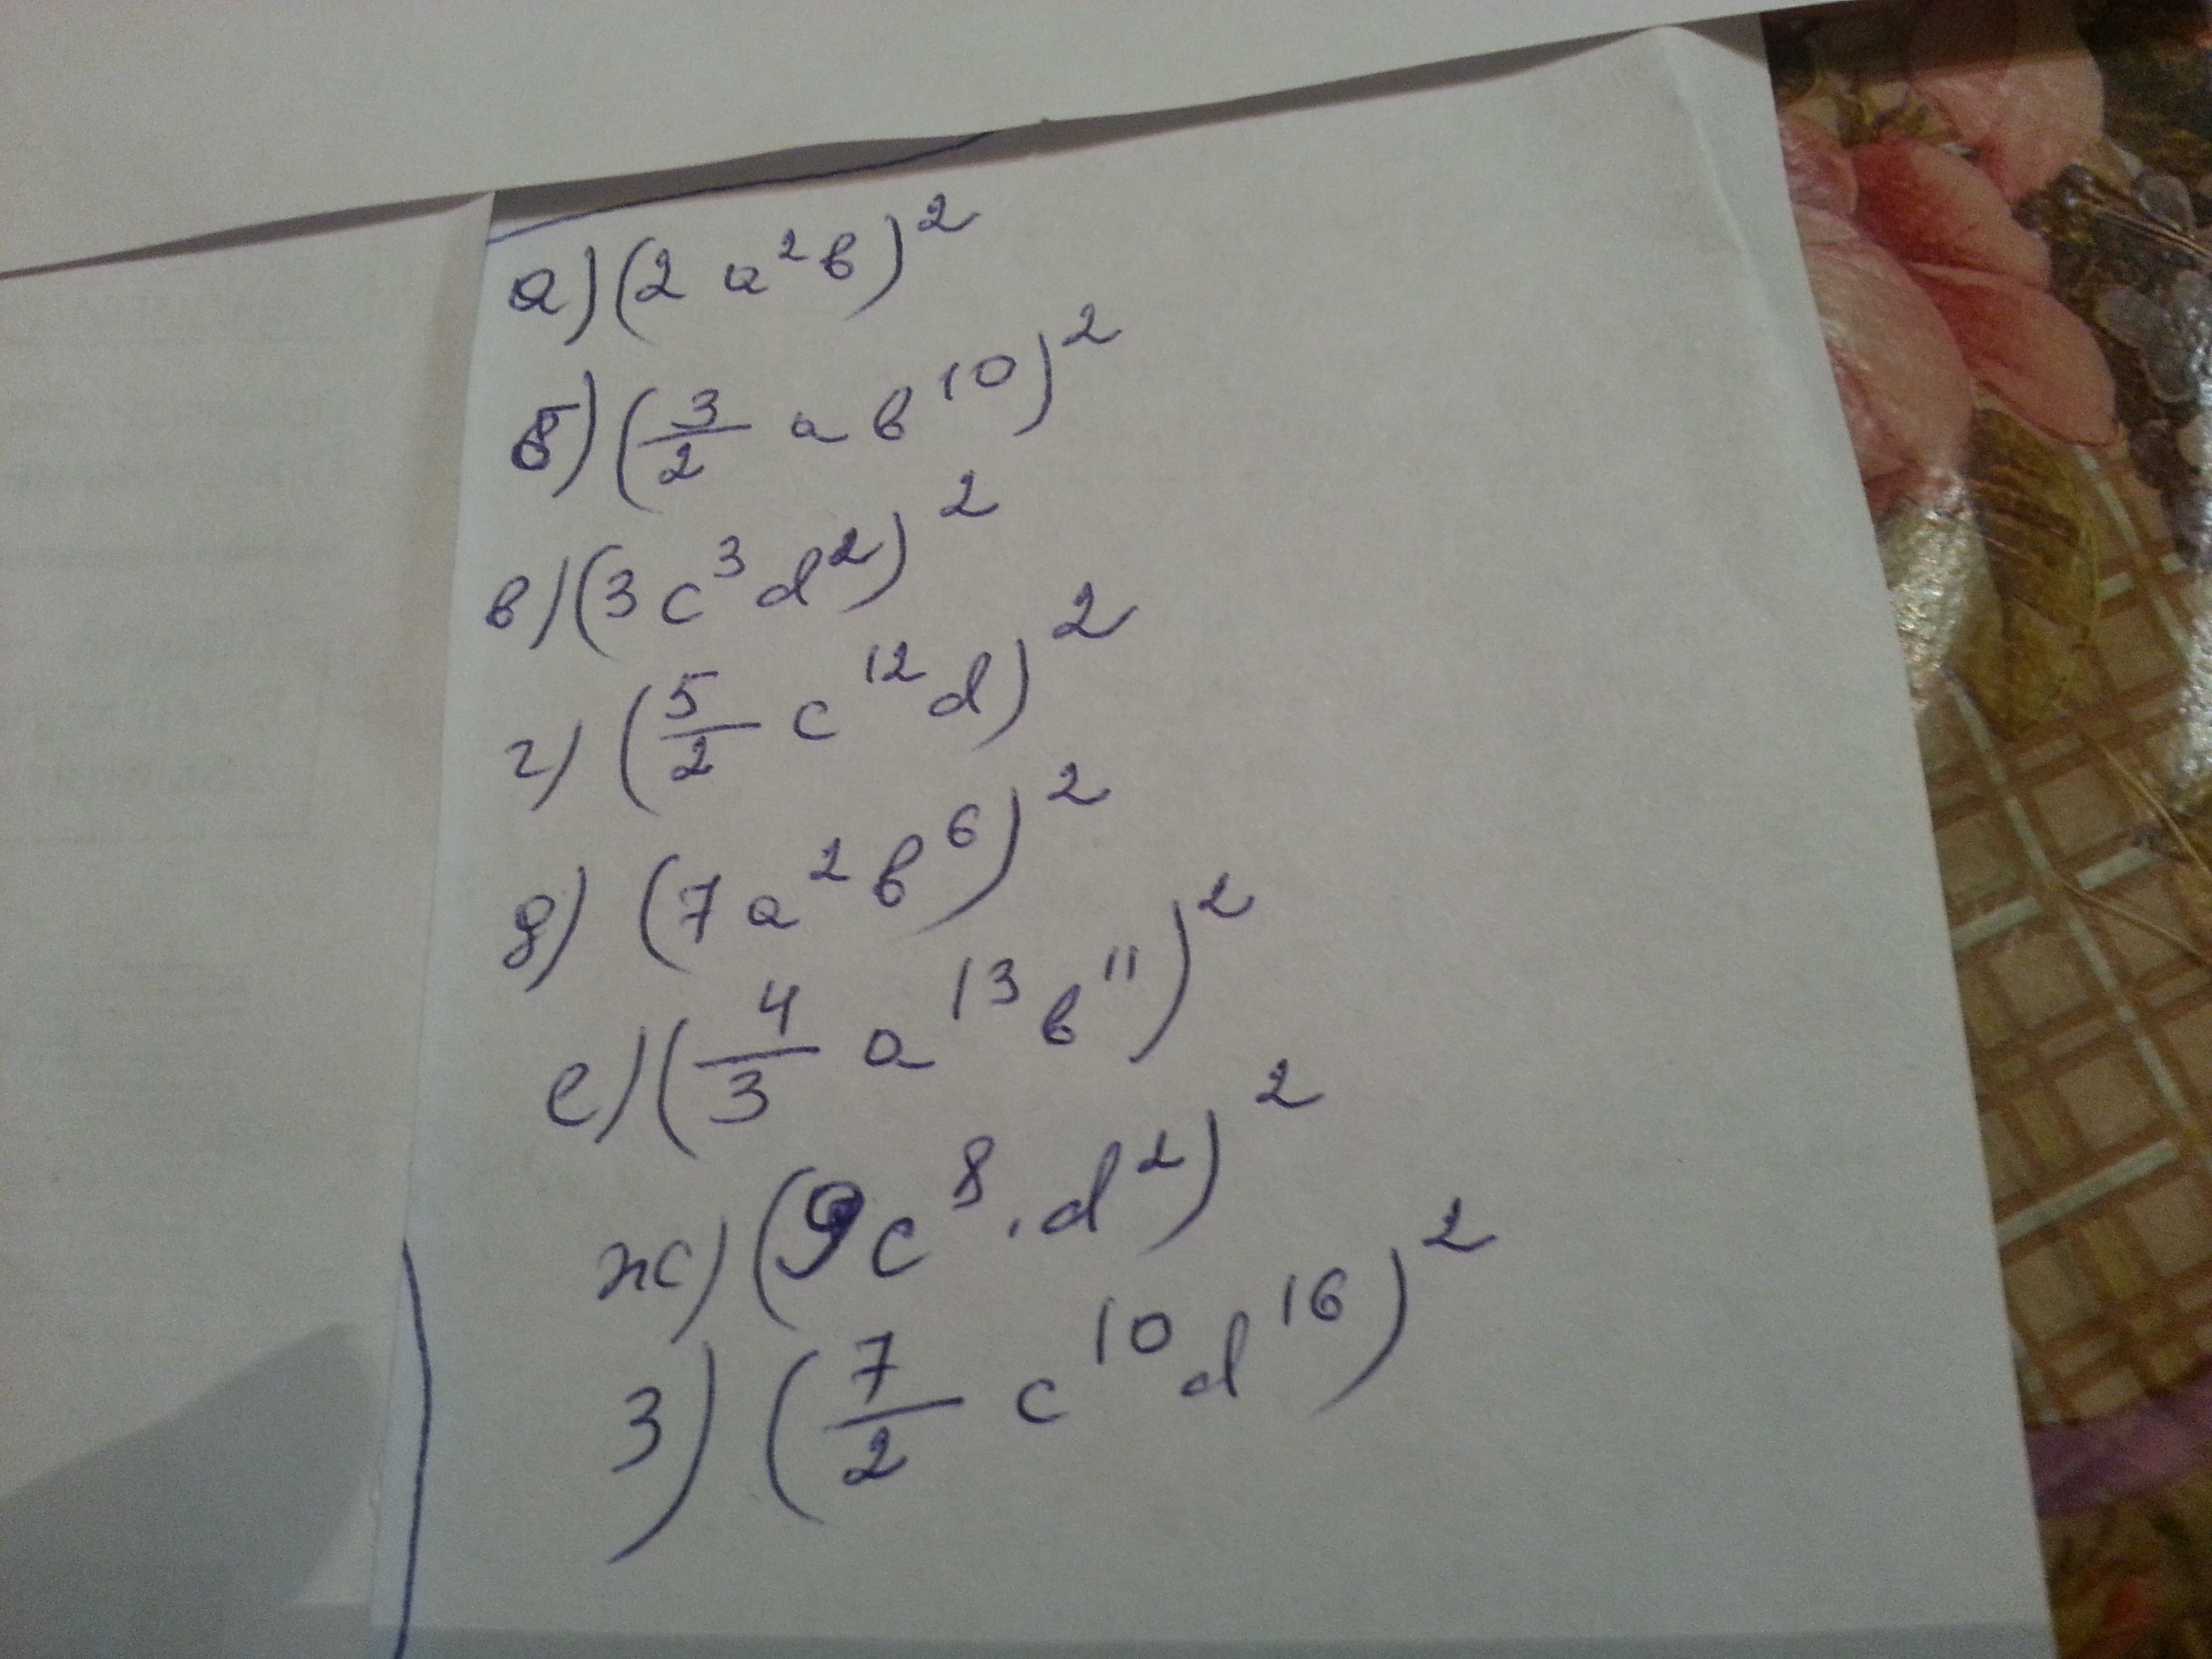 а) (2 a²b)²
б) (3/2 a b¹⁰)²
в) (3 c³ d²)²
г) (5/2 c¹² d)²
д) (7 a² b⁶)²
е) (4/3 a¹³ b¹¹)²
ж) (9 c⁸ · d²)²
з) (7/2 c¹⁰ d¹⁶)²